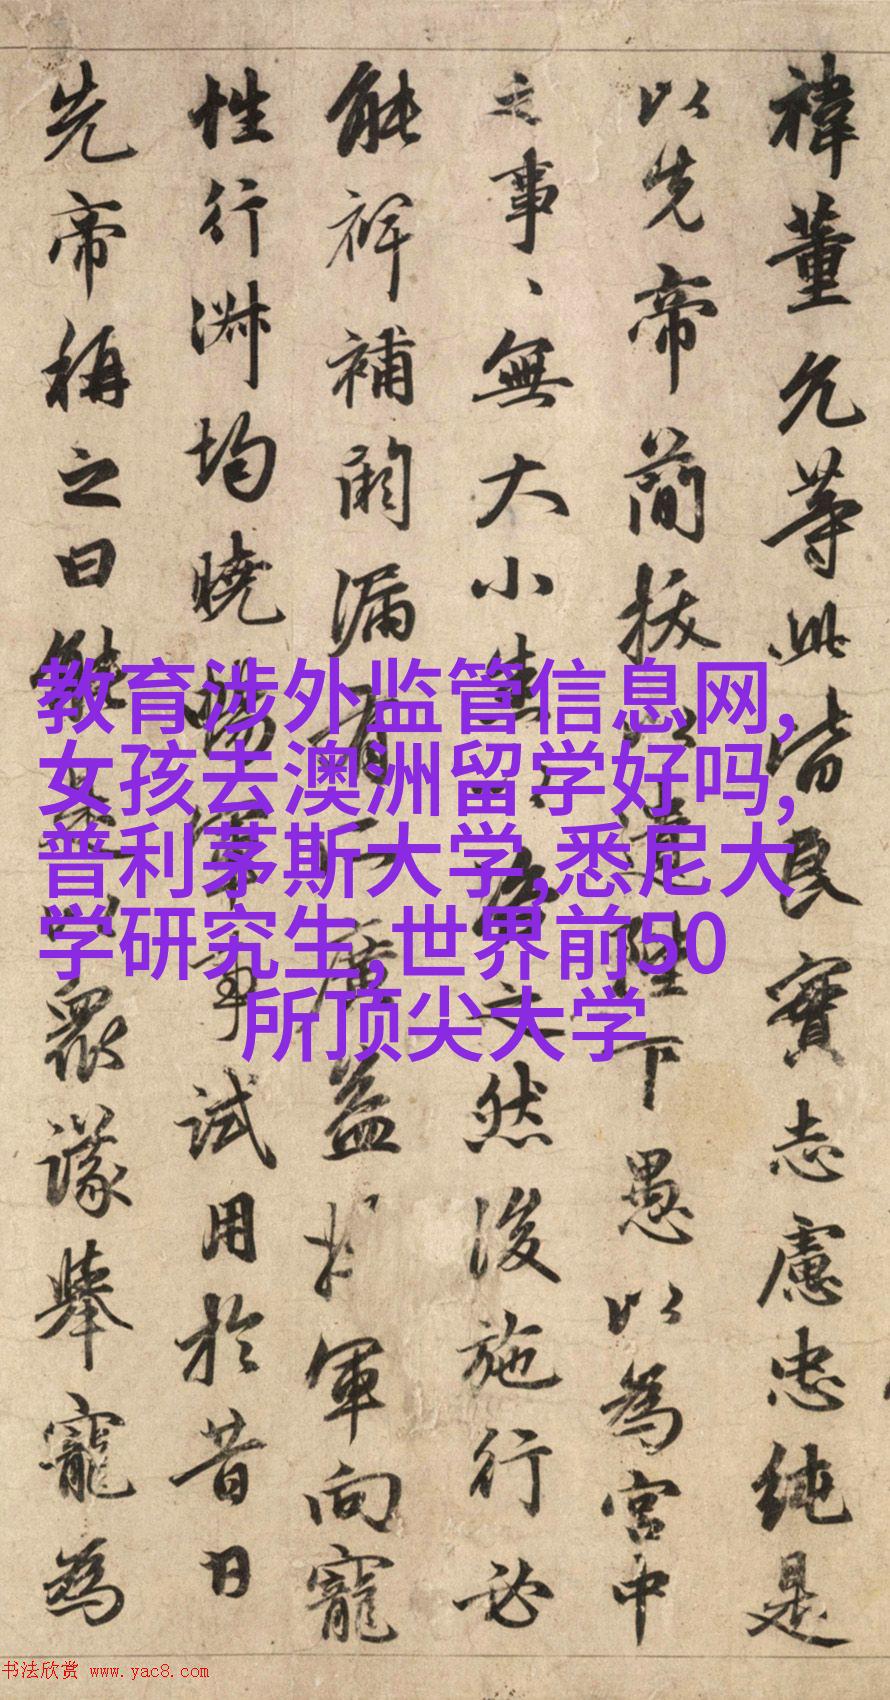 禕董允等此皆良實志慮忠純是
以先帝簡拔以遺陛下愚以為宮中
之事、無大小悉咨之然後施行必
能裨補闕漏有廣益將軍向寵
性行淋均曉暢軍事試用於昔日
先帝稱之曰能是以眾議舉寵為
教育涉外监管信息网,
女孩去澳洲留学好吗,
普利茅斯大学,悉尼大
学研究生,世界前50
所顶尖大学
书法欣赏 www.yac8.com